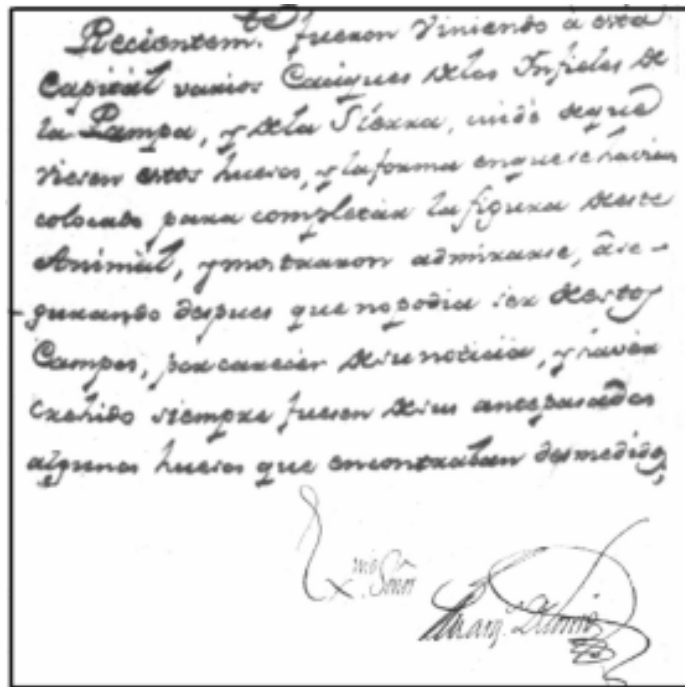 Recientem.te fueron viniendo à esta
Capitàl varios Caciques delos Infieles de
la Pampa, y dela Sierra, cuidè de què
viesen estos huesos, y la forma en que se havian
colocado para completàr la figura deste
Animàl, y mostraron admirarse, ase-
gurando despues que no podia ser destos
Campos, por carecèr de su noticia, y havèr
Crehido siempre fuesen de sus antepasados
algunos huesos que encontraban desmedidos,
Exmo Señor
Marq.s